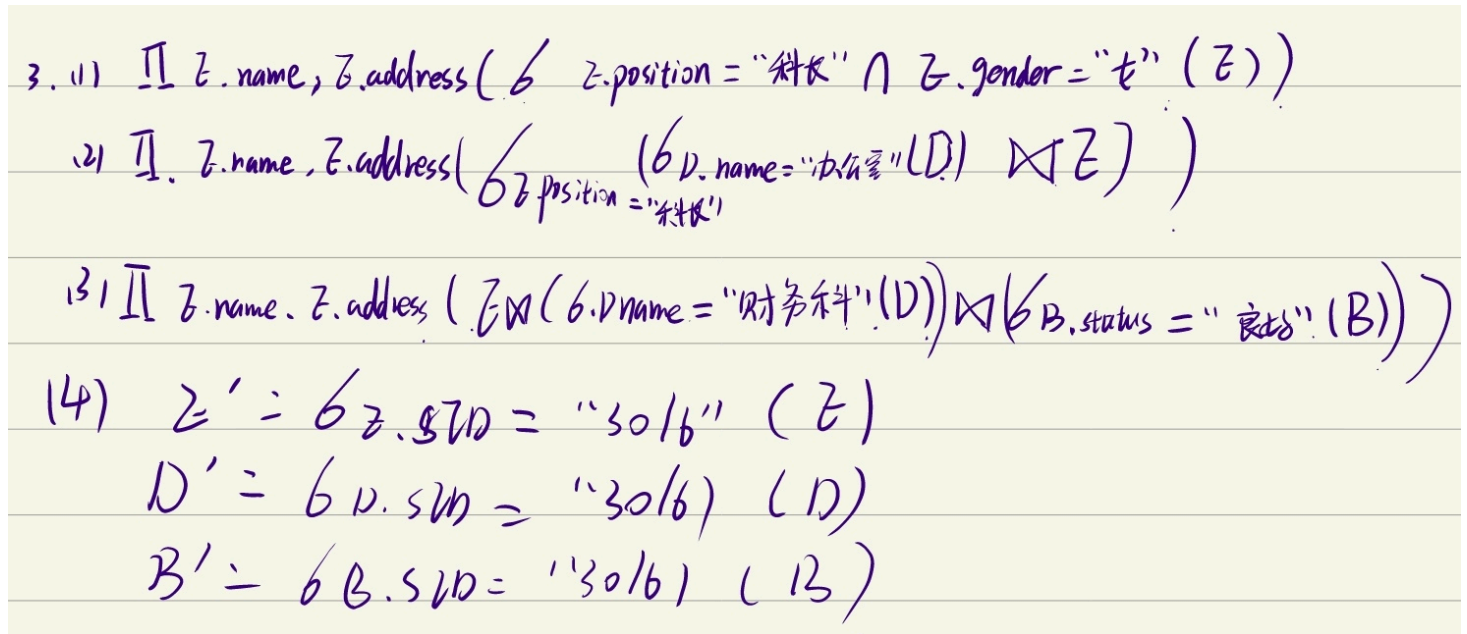 3. (1) Π E.name, E.address(σ E.position = "科长" ∩ E.gender = "女" (E))
(2) Π. E.name, E.address(σ E position = "科长" (σ D.name = "办公室" (D) ⋈ E))
(3) Π E.name、E.address (E⋈(σ.Dname = "财务科" (D))⋈(σ B.status = "良好" (B)))
(4) E' = σ E.SID = "3016" (E)
D' = σ D.SID = "3016) (D)
B' = σ B.SID = "3016) (B)